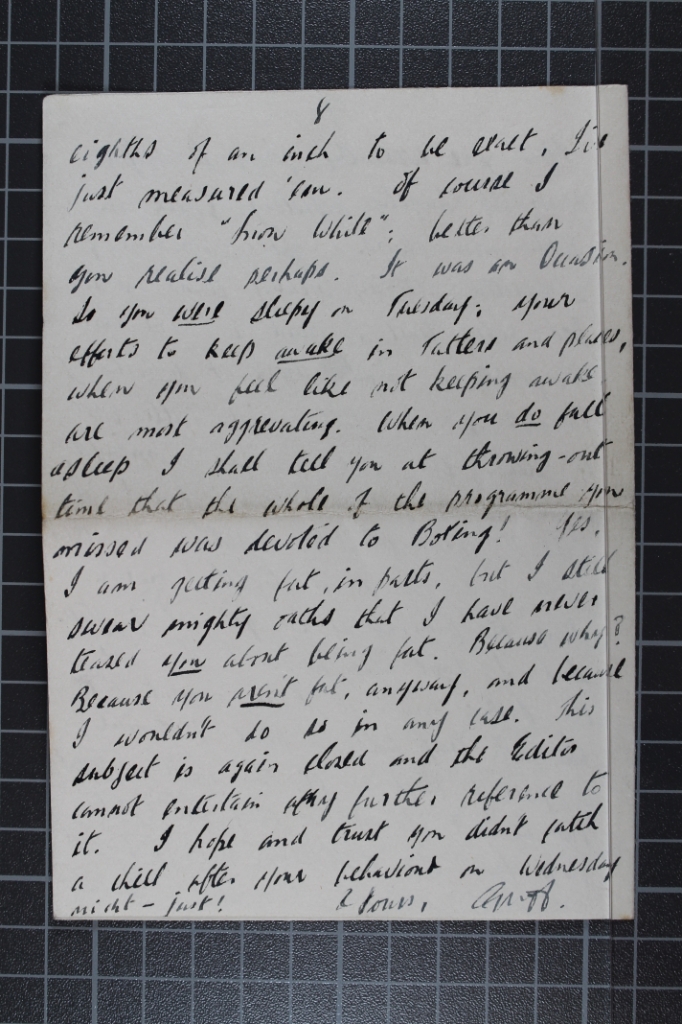 8
eighths of an inch to be exact, I've
just measured 'em. Of course I
remember "Snow White"; better than
you realise perhaps. It was an Occasion.
So you were sleepy on Tuesday; your
efforts to keep awake in Tatters and places,
when you feel like not keeping awake,
are most aggrevating. When you do fall
asleep I shall tell you at throwing-out
time that the whole of the programme you
missed was devoted to Boxing! Yes,
I am getting fat, in parts, but I still
swear mighty oaths that I have never
teased you about being fat. Because why?
Because you aren't fat, anyway, and because
I wouldn't do so in any case. This
subject is again closed and the Editor
cannot entertain any further reference to
it. I hope and trust you didn't catch
a chill after your behaviour on Wednesday
night - just! Yours,